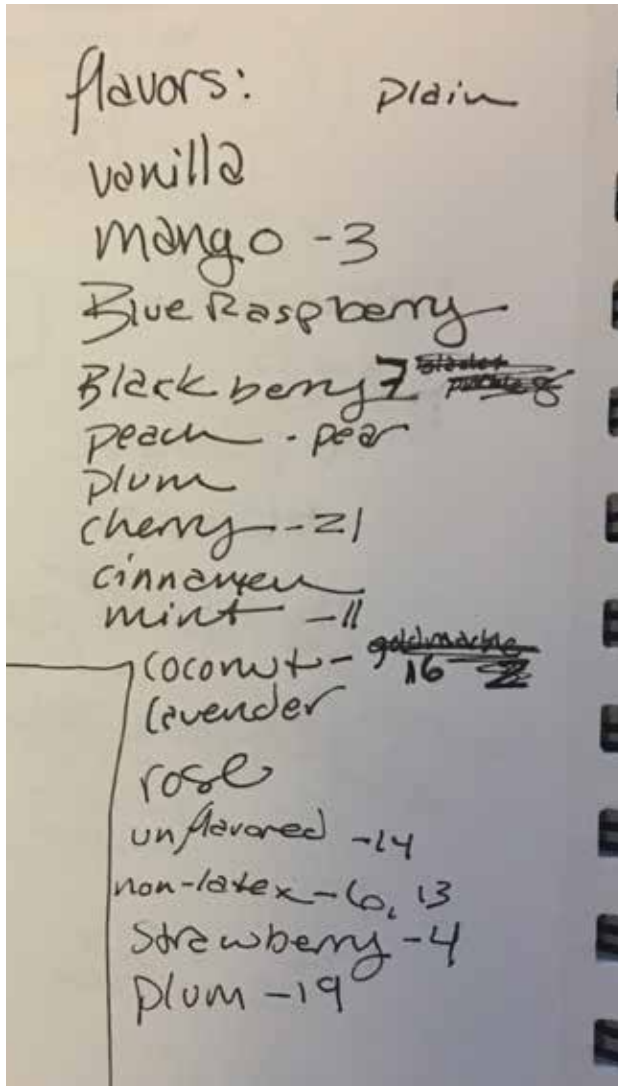 flavors: plain
vanilla
mango - 3
Blue Raspberry
Blackberry 7
peach - pear
plum
cherry - 21
cinnamen
mint - 11
coconut - goldmachine
16 2
lavender
rose
unflavored - 14
non-latex - 6, 13
Strawberry - 4
plum - 19